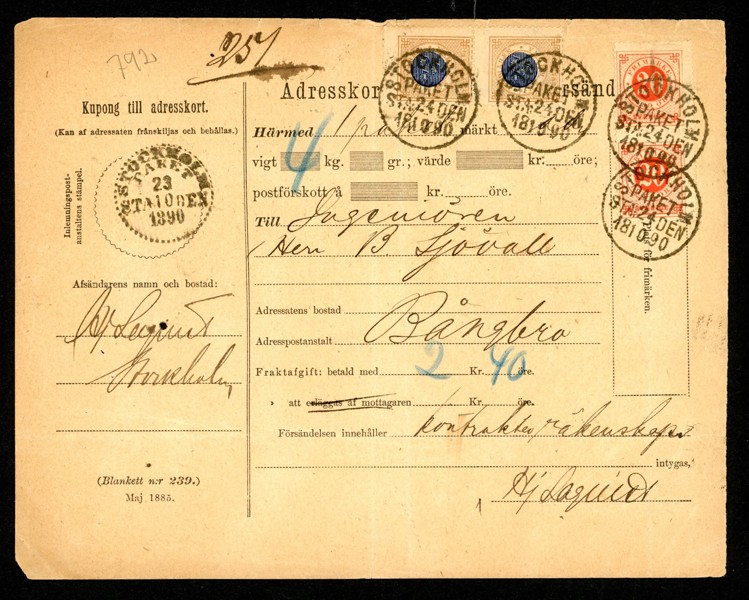 792
251
Adresskort
Kupong till adresskort.
(Kan af adressaten frånskiljas och behållas.)
Inlemningspost-
anstaltens stämpel.
STOCKHOLM
PAKET
23
STA 1 ODEN
1890
Afsändarens namn och bostad:
Hj Lagus
Stockholm,
(Blankett n:r 239.)
Maj 1885.
STOCKHOLM
PAKET
ST.A.24 DEN
18 10 90
STOCKHOLM
PAKET
ST.A.24 DEN
18 10 90
Härmed 1 märkt
4
vigt kg. gr.; värde kr. öre;
postförskott å kr. öre.
Till Ingeniören
Herr B. Sjövall
Adressatens bostad
Adresspostanstalt Bångbro
Fraktafgift: betald med 2 Kr. 40 öre.
» att erläggas af mottagaren Kr. öre.
Försändelsen innehåller kontrakter, räkenskap
intygas,
20
STOCKHOLM
PAKET
ST.A.24 DEN
18 10 90
20
STOCKHOLM
PAKET
ST.A.24 DEN
18 10 90
för frimärken.